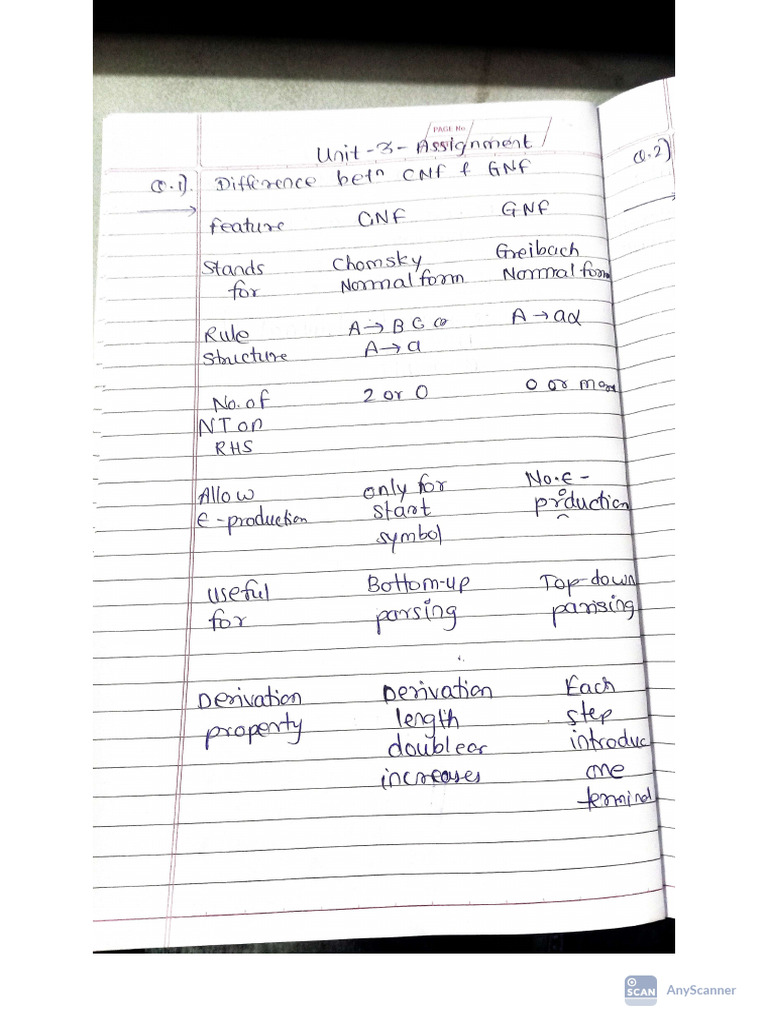 PAGE No
Unit-3-Assignment
Q.1). Difference betn CNF & GNF
Q.2)
feature CNF GNF
Stands for Chomsky Normal form Greibach Normal form
Rule Structure A→BC or A→a A→aα
No. of NT on RHS 2 or 0 0 or more
Allow ε-production only for start symbol No.ε-production
useful for Bottom-up parsing Top-down parising
Derivation property Derivation length increases Each step introduc one terminal
SCAN AnyScanner